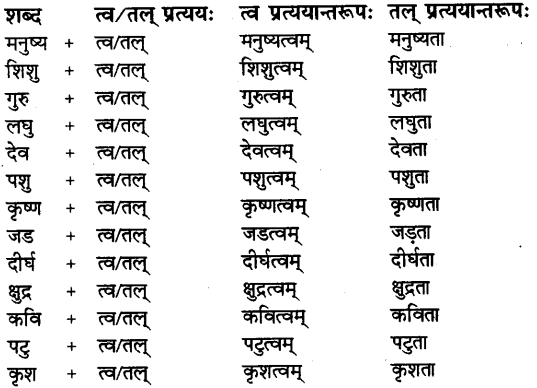 शब्द त्व/तल् प्रत्ययः त्व प्रत्ययान्तरूपः तल् प्रत्ययान्तरूपः
मनुष्य + त्व/तल् मनुष्यत्वम् मनुष्यता
शिशु + त्व/तल् शिशुत्वम् शिशुता
गुरु + त्व/तल् गुरुत्वम् गुरुता
लघु + त्व/तल् लघुत्वम् लघुता
देव + त्व/तल् देवत्वम् देवता
पशु + त्व/तल् पशुत्वम् पशुता
कृष्ण + त्व/तल् कृष्णत्वम् कृष्णता
जड + त्व/तल् जडत्वम् जड़ता
दीर्घ + त्व/तल् दीर्घत्वम् दीर्घता
क्षुद्र + त्व/तल् क्षुद्रत्वम् क्षुद्रता
कवि + त्व/तल् कवित्वम् कविता
पटु + त्व/तल् पटुत्वम् पटुता
कृश + त्व/तल् कृशत्वम् कृशता